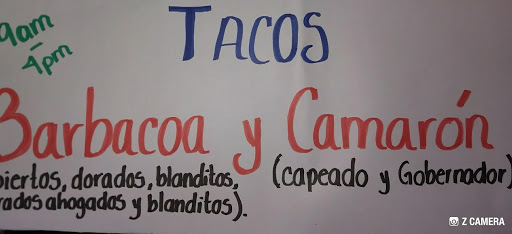 9am
-
4pm
TACOS
Barbacoa y Camarón
biertos, dorados, blanditos, (capeado y Gobernador)
rados ahogados y blanditos).
Z CAMERA